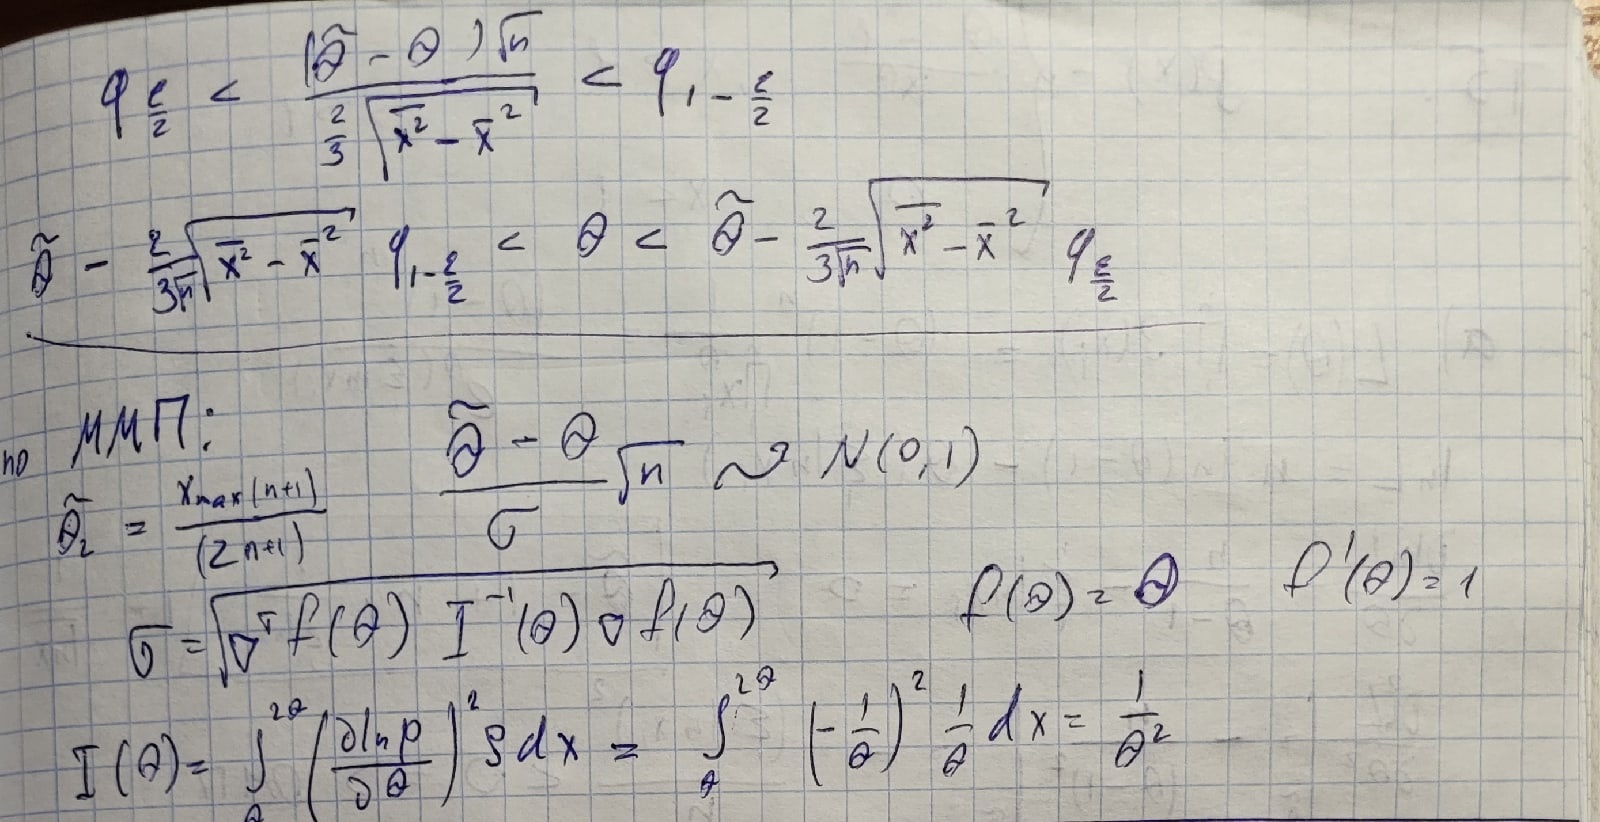 q_{ε/2} < \frac{(\tilde{θ} - θ)\sqrt{n}}{\frac{2}{3}\sqrt{\overline{x^2} - \bar{x}^2}} < q_{1-ε/2}
\tilde{θ} - \frac{2}{3\sqrt{n}}\sqrt{\overline{x^2} - \bar{x}^2} q_{1-ε/2} < θ < \tilde{θ} - \frac{2}{3\sqrt{n}}\sqrt{\overline{x^2} - \bar{x}^2} q_{ε/2}
по ММП: \frac{\tilde{θ} - θ}{σ}\sqrt{n} ~ N(0,1)
\tilde{θ}_2 = \frac{x_{max}(n+1)}{(2n+1)}
σ = \sqrt{∇^T f(θ) I^{-1}(θ) ∇ f(θ)} f(θ) = θ f'(θ) = 1
I(θ) = ∫_θ^{2θ} (\frac{∂ln p}{∂θ})^2 ρ dx = ∫_θ^{2θ} (-\frac{1}{θ})^2 \frac{1}{θ} dx = \frac{1}{θ^2}